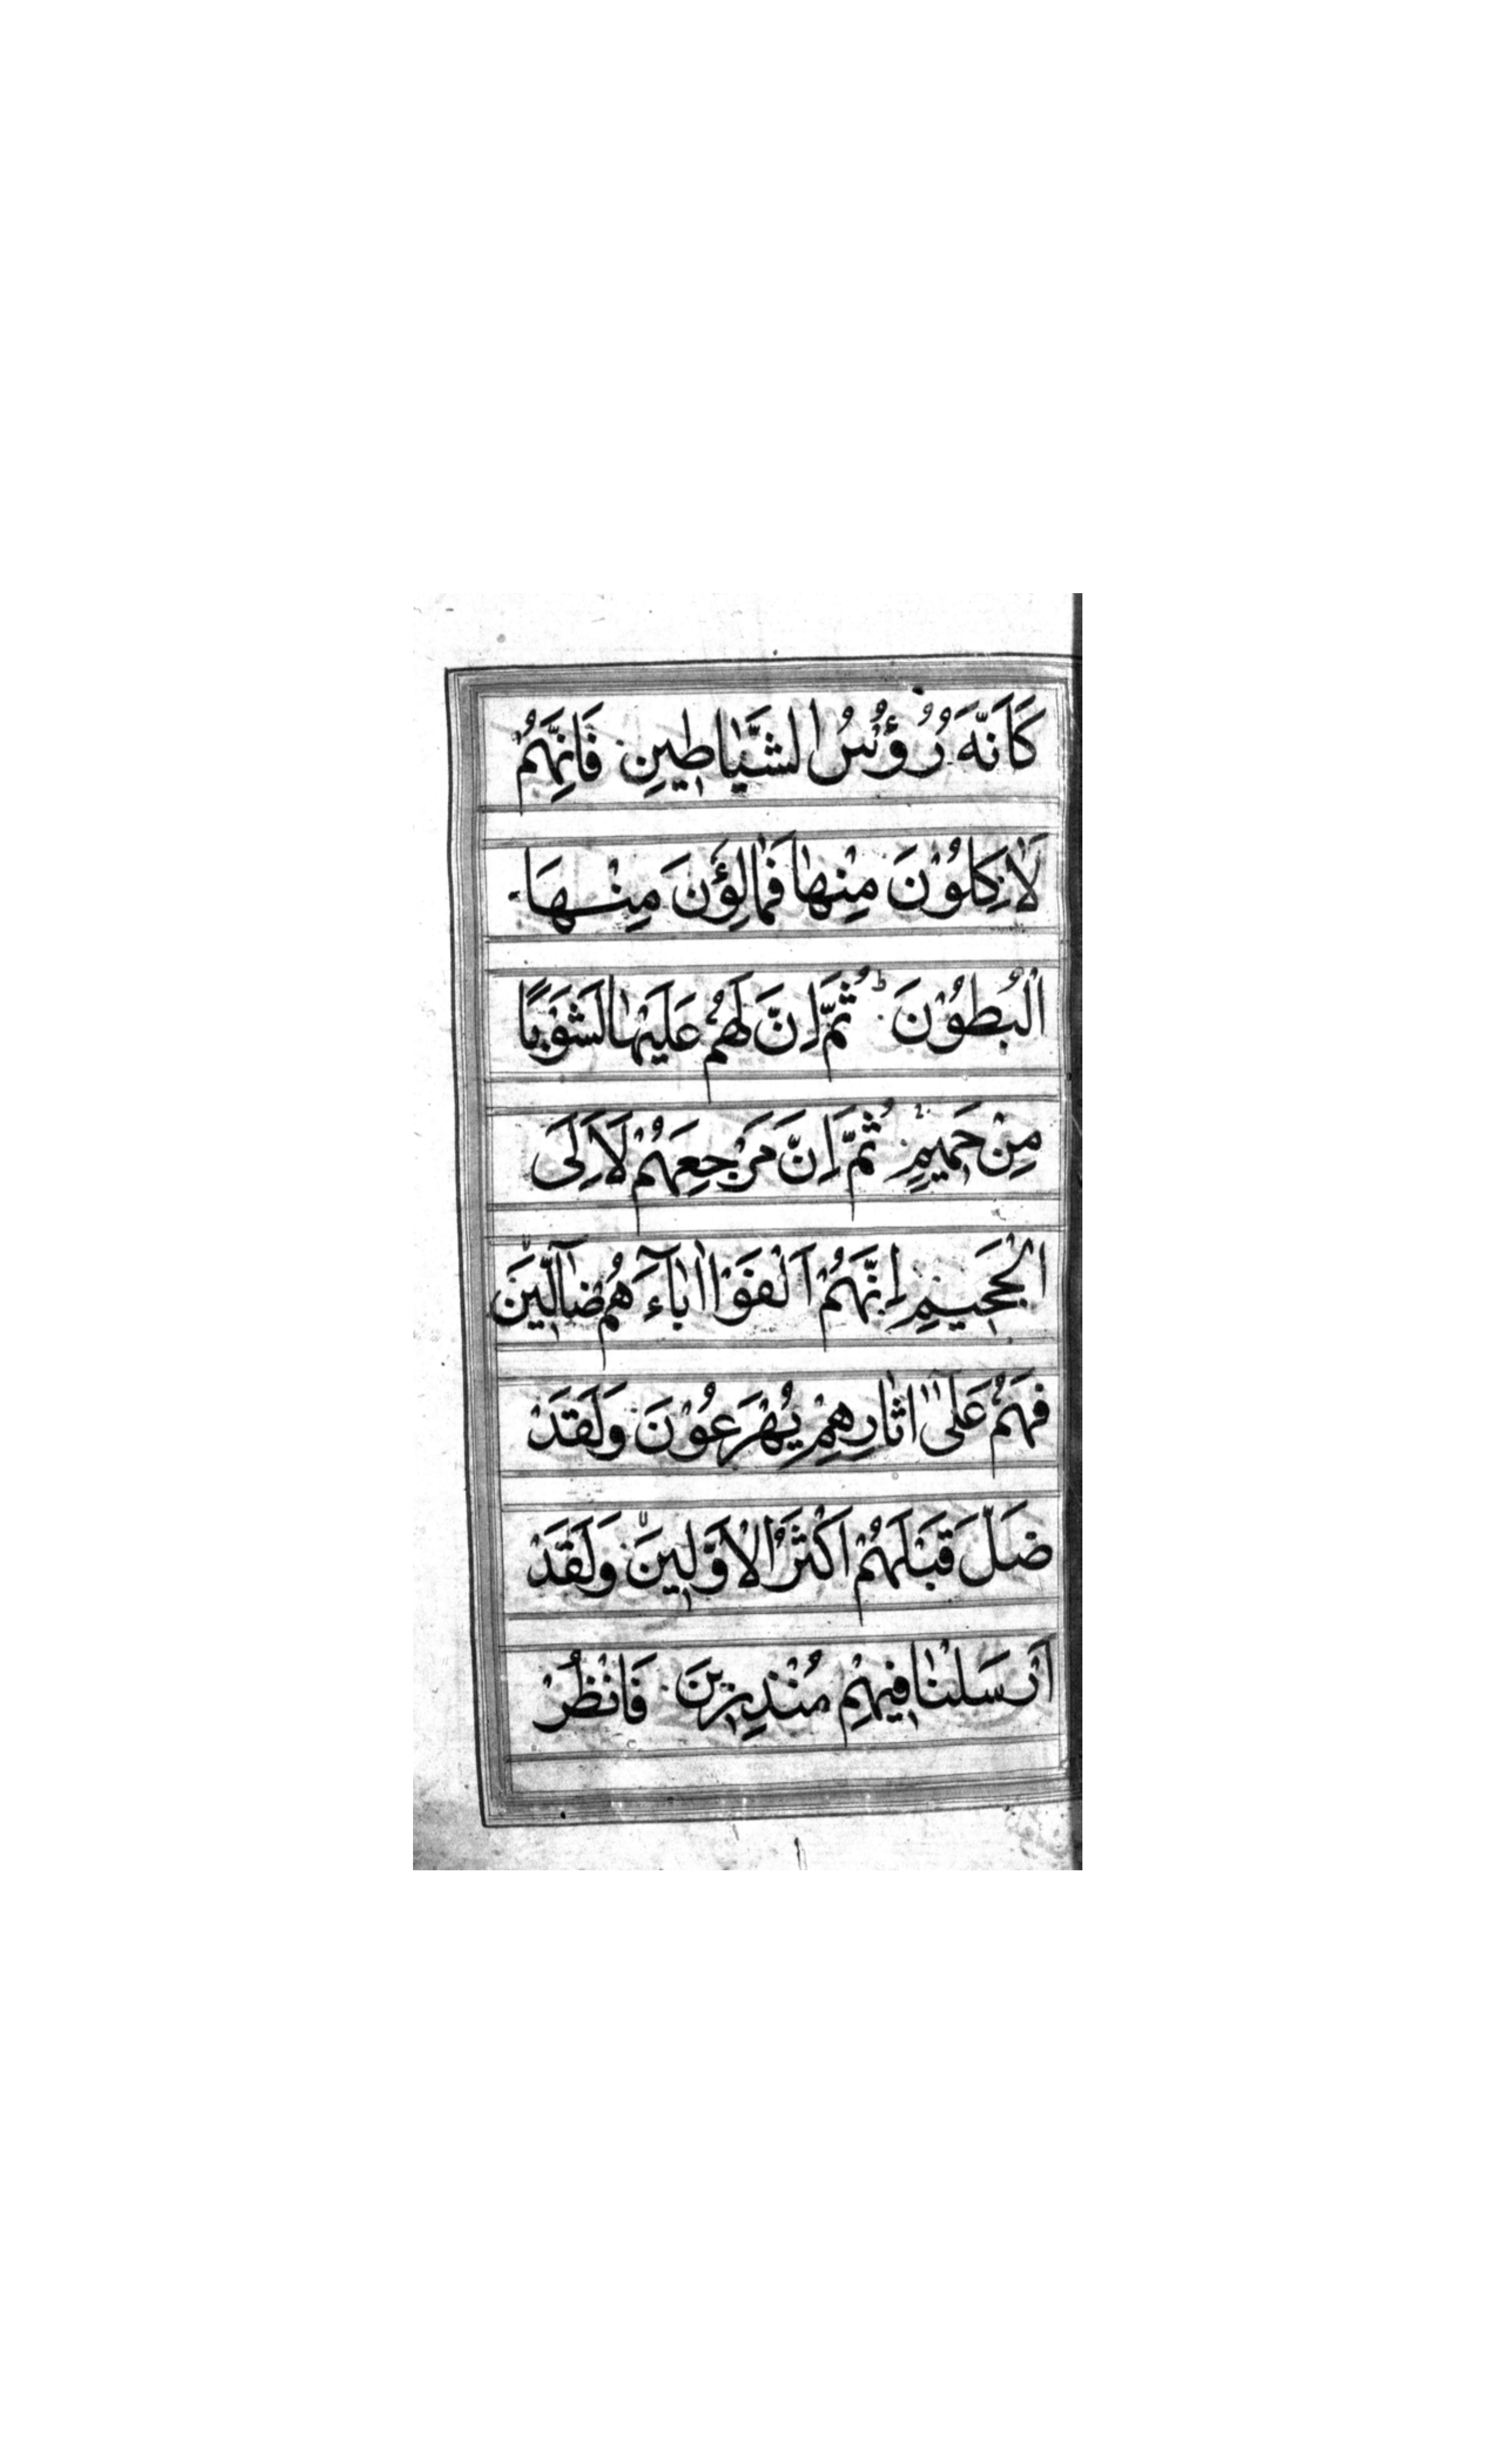 كَاَنَّهَ رُؤُسُ الشَّيَاطِينِ فَاِنَّهُمْ
لَاٰكِلُوْنَ مِنْهَا فَمَالِؤُنَ مِنْهَا
الْبُطُوْنَ ط ثُمَّ اِنَّ لَهُمْ عَلَيْهَا لَشَوْبًا
مِنْ حَمِيمٍ ثُمَّ اِنَّ مَرْجِعَهُمْ لَاَاِلَى
الْجَحِيمِ اِنَّهُمْ اَلْفَوْا اٰبَآءَهُمْ ضَآلِّينَ
فَهُمْ عَلٰٓى اٰثَارِهِمْ يُهْرَعُوْنَ وَلَقَدْ
ضَلَّ قَبْلَهُمْ اَكْثَرُ الْاَوَّلِينَ وَلَقَدْ
اَرْسَلْنَا فِيهِمْ مُنْذِرِينَ فَانْظُرْ